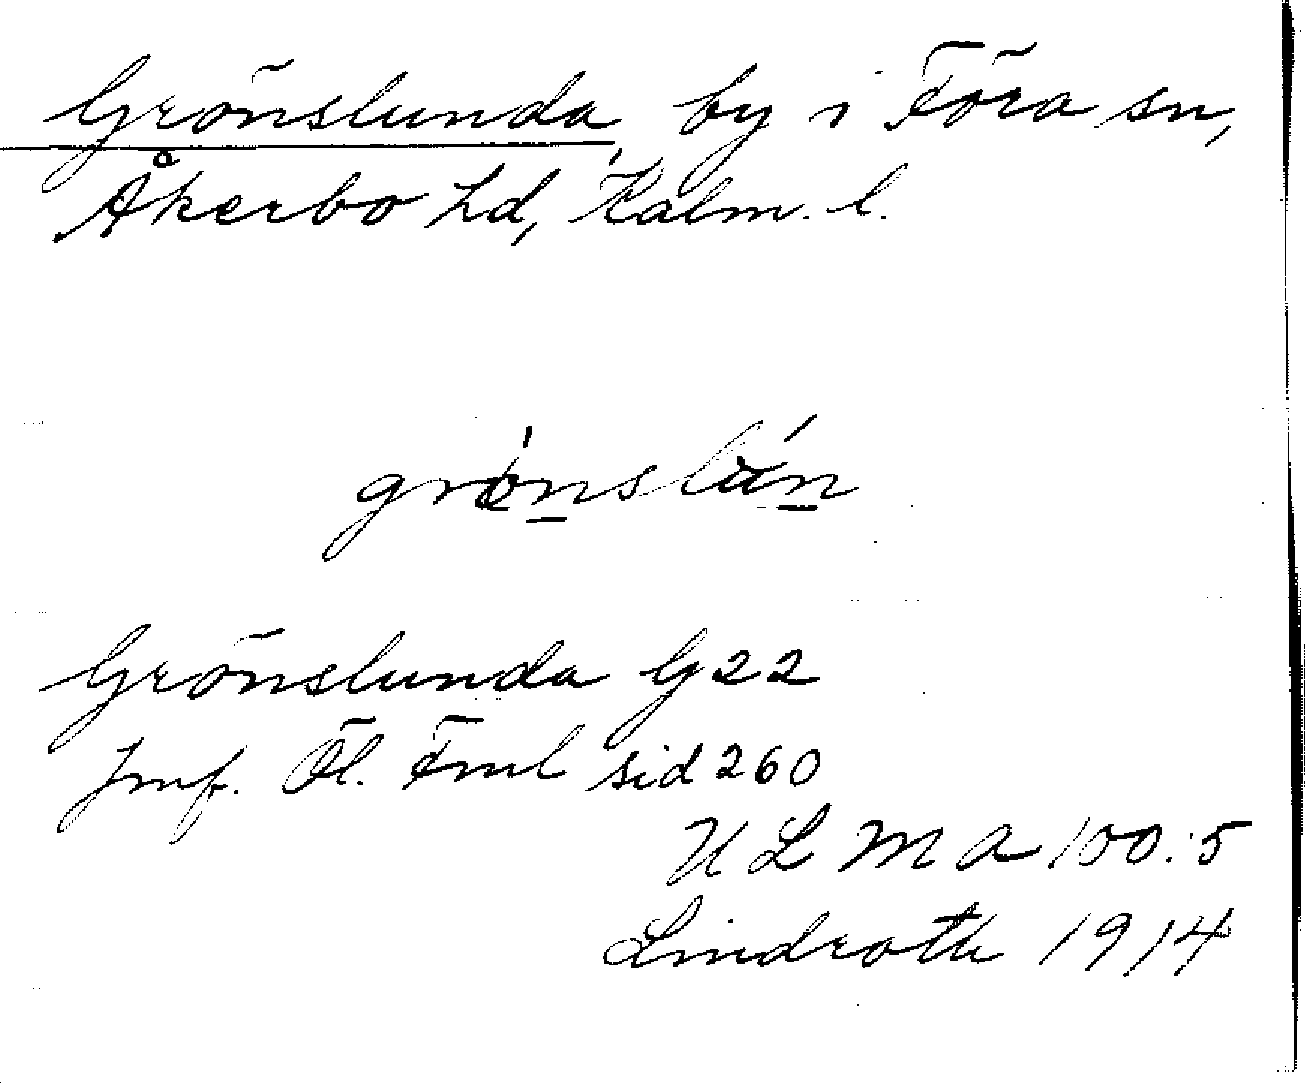 Grönslunda, by i Föra sn,
Åkerbo hd, Kalm. l.
grønslún
Grönslunda G 22
Jmf. Öl. Fml sid 260
ULMA 100:5
Lindroth 1914